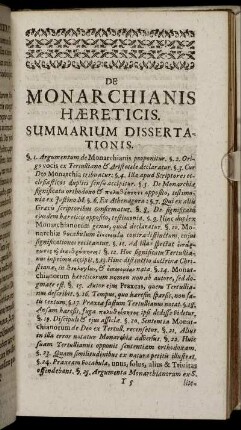 DE
MONARCHIANIS
HÆRETICIS.
SUMMARIUM DISSERTA-
TIONIS.
§. 1. Argumentum de Monarchianis proponitur. §. 2. Ori-
go vocis ex Tertulliano & Aristotele declaratur. §. 3. Cur
Deo Monarchia tribuatur: §. 4. Illa apud Scriptores ec-
clesiasticos duplici sensu accipitur. §. 5. De Monarchiæ
significatu orthodoxo opposito, testimo-
nia ex Justino M. §. 6. Ex Athenagora: §. 7. Qui ex aliis
Græcis scriptoribus confirmatur. §. 8. De significatu
ejusdem hæretico opposito, testimonia. §. 9. Hinc duplex
Monarchianorum genus, quod declaratur. §. 10. Mo-
narchiæ Vocabulum
significationes recitantur. §. 11. Ad illas spectat
§. 12. Hoc significatu Tertullia-
num imprimis accipit. §. 13. Hinc distinctio doctrinæ Chri-
stianæ, in nota. §. 14. Monar-
chianorum hæreticorum nomen non ab autore, sed do-
gmate est. §. 15. Autor ejus Praxeas, quem Tertullia-
nus describit. §. 16. Tempus, quo hæresin sparsit, non sa-
tis certum. §. 17. Praxeas fastum Tertulliano notat. §. 18.
Ansam hæresis, fuga ipsi dedisse videtur.
§. 19. Discipuli & ejus asseclæ. §. 20. Sententia Monar-
chianorum de Deo ex Tertull. recensetur. §. 21. Aliæ
in illa errore notatur Monarchia adscribi. §. 22. Huic
suam Tertullianus opponit sententiam orthodoxam.
§. 23. Quam similitudinibus ex natura petitis illustrat.
§. 24. Praxeam Vocabula, unus, solus, alius & Trinitas
offendebant. §. 25. Argumenta Monarchianorum ex S.
T 5 lite-